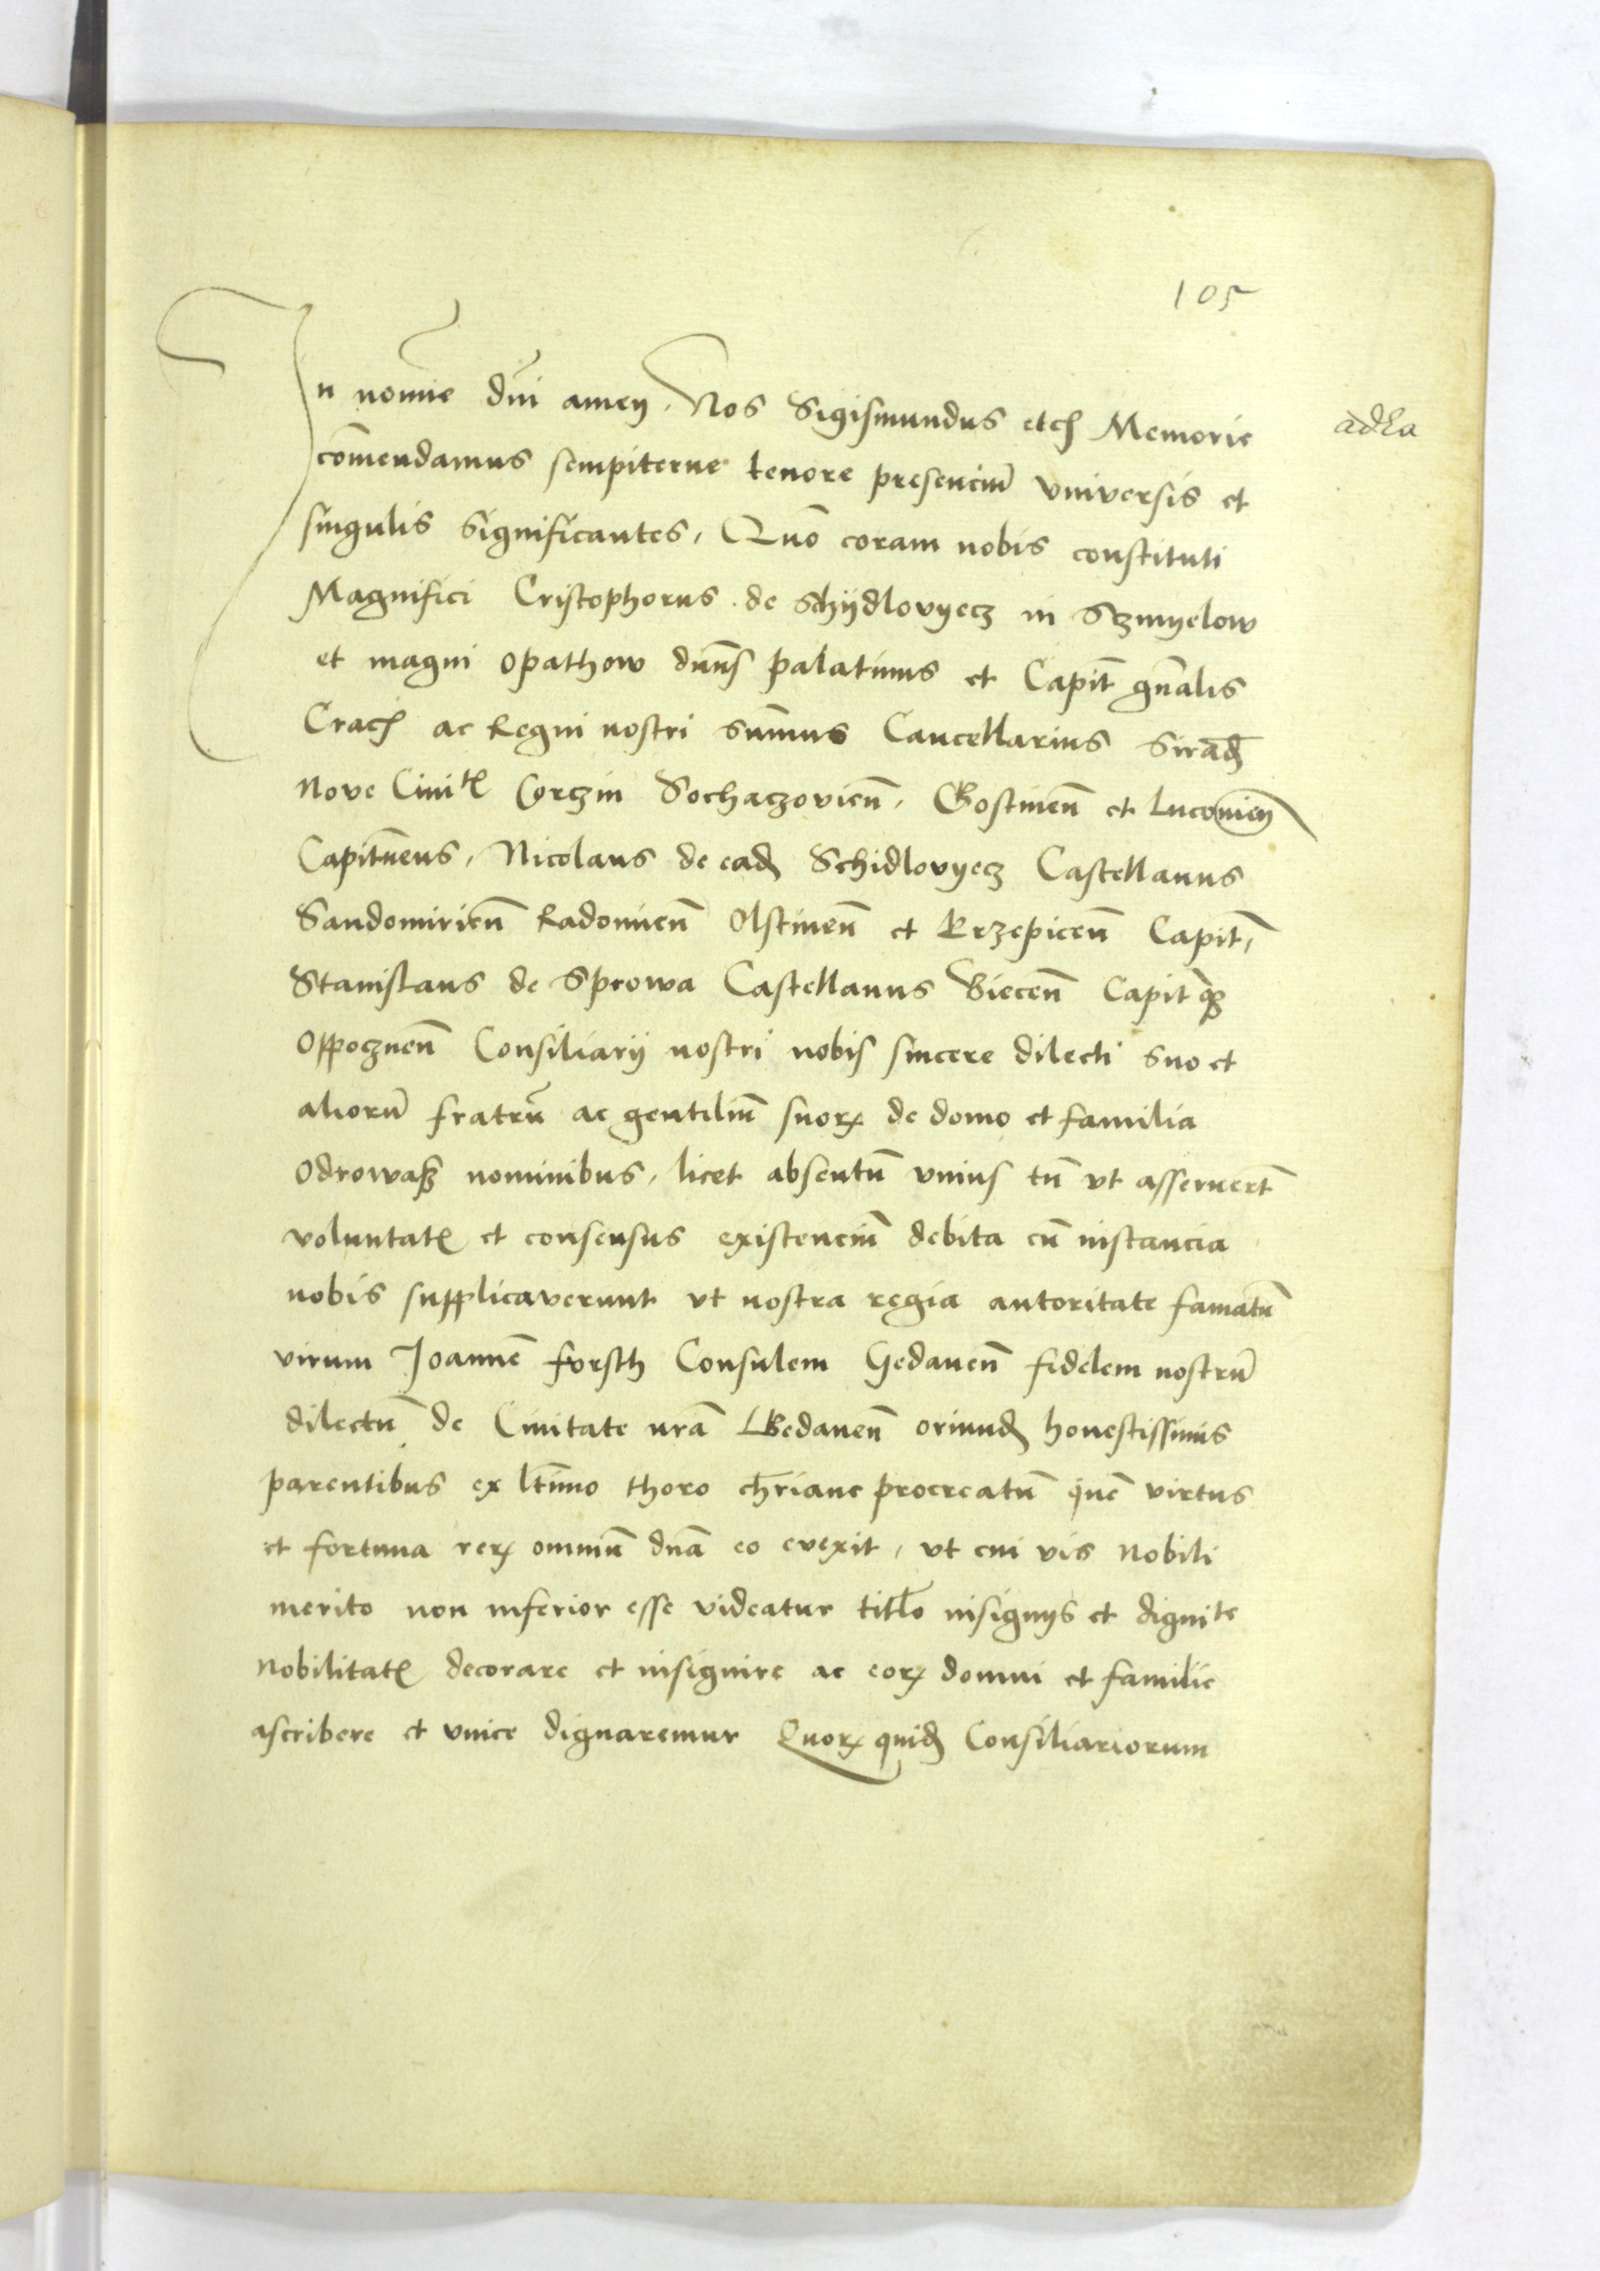 105
In nomīe dn̄i amen. Nos Sigismundus etc̄ Memorie
adla
cōmendamus sempiterne tenore presenciū vniversis et
singulis significantes, Quō coram nobis constituti
Magnifici Cristophorus de Schÿdlovyecz in Sczmyelow
et magni Opathow dnn̄s palatinus et Capit̄ gn̄alis
Crac̄ ac Regni nostri sūmus Cancellarius Sirad̄
Nove Civitꝭ Corczin Sochaczovien̄, Gostinen̄ et
Capitn̄eus, Nicolaus de ead̄ Schidlovyecz Castellanus
Sandomirien̄ Radomien̄ Olstinen̄ et Krzepicen̄ Capit̄,
Stanislaus de Sprowa Castellanus Biecen̄ Capit̄qꝫ
Oppocznen̄ Consiliarij nostri nobis sincere dilecti suo et
aliorū fratrū ac gentiliū suoꝝ de domo et familia
Odrowasz nominibus, licet absentū vnius tn̄ vt asseruert̄
voluntatꝭ et consensus existenciū debita cū instancia
nobis supplicaverunt vt nostra regia autoritate famatū
virum Joannē forsth Consulem Gedanen̄ fidelem nostrū
dilectū de Civitate nr̄a Gedanen̄ oriund̄ honestissimis
parentibus ex ltīmo thoro chr̄iane procreatū quē virtus
et fortuna reꝝ omniū dn̄a eo evexit, vt cui vis nobili
merito non inferior esse videatur titlo insignijs et dignite
nobilitatꝭ decorare et insignire ac eoꝝ domui et familie
ascribere et vnire dignaremur Quoꝝ quid̄ Consiliariorum